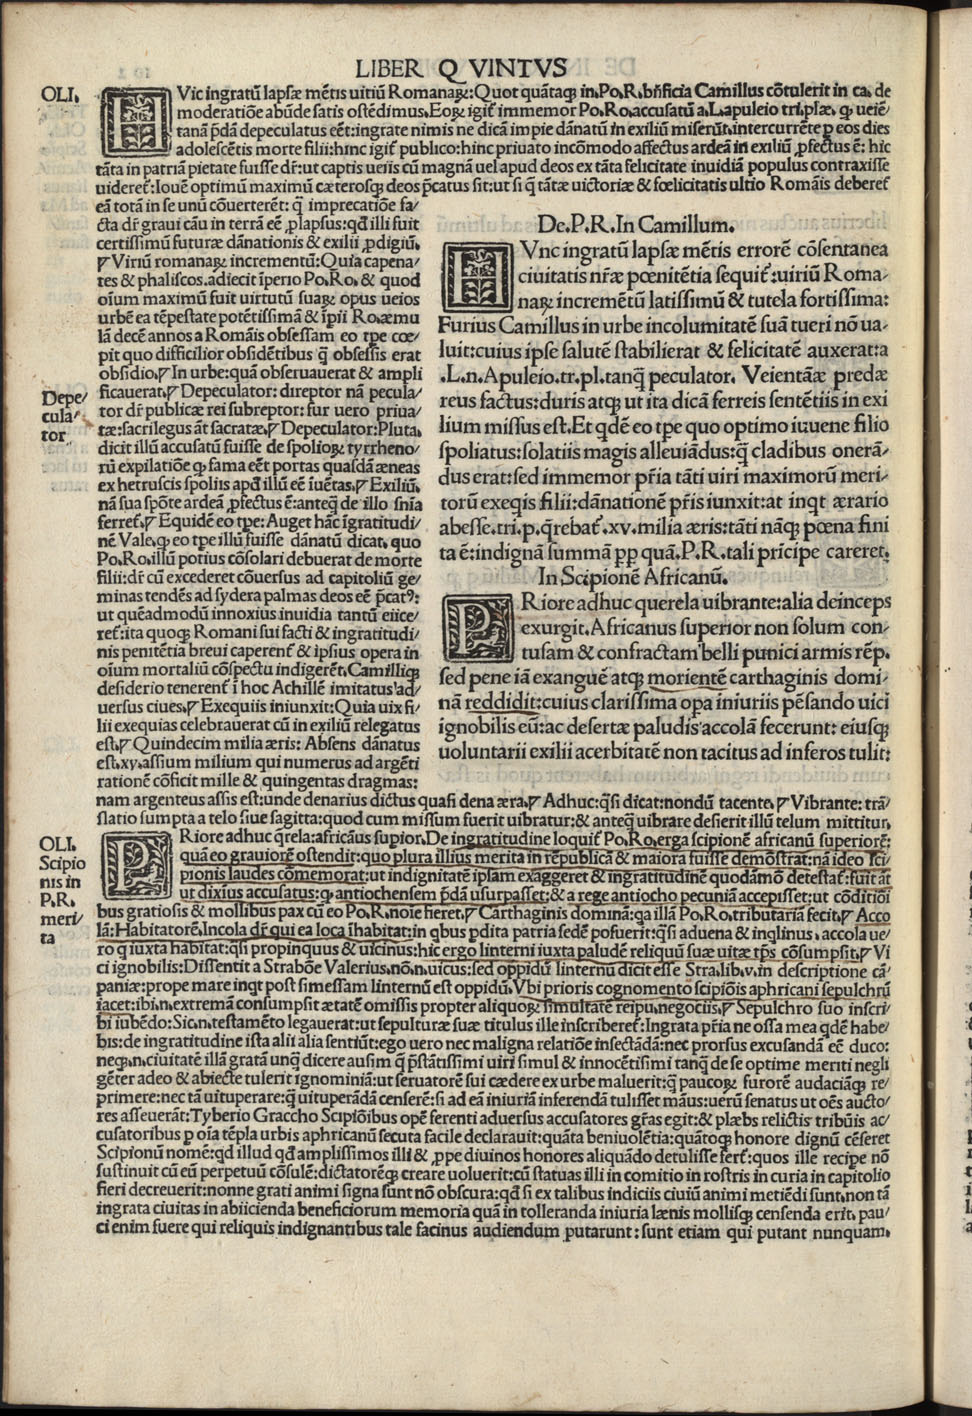 LIBER Q VINTVS
OLI.
HVic ingratū lapsæ mētis uitiū Romanaꝝ: Quot quātaq; in.Po.R.bñficia Camillus cōtulerit in ca. de
moderatiōe abūde satis ostēdimus.Eoꝝ igit̃ immemor Po.Ro.accusatū a.L.apuleio tri.plæ. ꝙ ueiē⸗
tanā p̄dā depeculatus eēt:ingrate nimis ne dicā impie dānatū in exiliū miserūt.intercurrēte ꝑ eos dies
adolescētis morte filii:hinc igit̃ publico:hinc priuato incōmodo affectus ardeā in exiliū ꝓfectus ē: hic
tāta in patriā pietate fuisse dr̃:ut captis ueiis cū magnā uel apud deos ex tāta felicitate inuidiā populus contraxisse
uideret̃:Iouē optimū maximū cæterosq; deos p̄catus sit:ut si q̄ tātæ uictoriæ & fœlicitatis ultio Romāis deberet̃
eā totā in se unū cōuerterēt: q̄ imprecatiōe fa⸗
cta dr̃ graui cāu in terrā eē ꝓlapsus:qđ illi fuit
certissimū futuræ dānationis & exilii ꝓdigiū.
¶Viriū romanaꝝ incrementū:Quia capena⸗
tes & phaliscos.adiecit īperio Po.Ro.& quod
oīum maximū fuit uirtutū suaꝝ opus ueios
urbē ea tēpestate potētissimā & īpii Ro.æmu
lā decē annos a Romāis obsessam eo tꝑe cœ⸗
pit quo difficilior obsidētibus q̄ obsessis erat
obsidio.¶In urbe:quā obseruauerat & ampli
ficauerat.¶Depeculator: direptor nā pecula⸗
tor dr̃ publicæ rei subreptor: fur uero priua⸗
tæ:sacrilegus āt sacratæ.¶Depeculator:Pluta.
dicit illū accusatū fuisse de spolioꝝ tyrrheno⸗
rū expilatiōe ꝙ fama eēt portas quasdā æneas
ex hetruscis spoliis apđ illū eē iuētas.¶Exiliū.
nā sua spōte ardeā ꝓfectus ē:anteq̄ de illo sñia
ferret̃.¶Equidē eo tꝑe: Auget hāc īgratitudi⸗
nē Vale.ꝙ eo tꝑe illū fuisse dānatū dicat. quo
Po.Ro.illū potius cōsolari debuerat de morte
filii:dr̃ cū excederet cōuersus ad capitoliū ge⸗
minas tendēs ad sydera palmas deos eē p̄catꝰ:
ut quēadmodū innoxius inuidia tantū eiice⸗
ret̃:ita quoq; Romani sui facti & ingratitudi⸗
nis penitētia breui caperent̃ & ipsius opera in
oīum mortaliū cōspectu indigerēt.Camilliq;
desiderio tenerent̃ ī hoc Achillē imitatus ad⸗
uersus ciues.¶Exequiis iniunxit: Quia uix fi⸗
lii exequias celebrauerat cū in exiliū relegatus
est.¶Quindecim milia æris: Absens dānatus
est.xv.assium milium qui numerus ad argēti
rationē cōficit mille & quingentas dragmas:
nam argenteus assis est:unde denarius dictus quasi dena æra.¶Adhuc:q̄si dicat:nondū tacente.¶Vibrante: trā⸗
slatio sumpta a telo siue sagitta:quod cum missum fuerit uibratur:& anteq̄ uibrare desierit illū telum mittitur.
Depe⸗
cula⸗
tor
De.P.R.In Camillum.
HVnc ingratū lapsæ mētis errorē cōsentanea
ciuitatis nr̃æ pœnitētia sequit̃:uiriū Roma⸗
naꝝ incremētū latissimū & tutela fortissima:
Furius Camillus in urbe incolumitatē suā tueri nō ua⸗
luit:cuius ipse salutē stabilierat & felicitatē auxerat:a
.L.n.Apuleio.tr.pl.tanq̄ peculator. Veientāæ predæ
reus factus:duris atq; ut ita dicā ferreis sentētiis in exi
lium missus est.Et qđē eo tꝑe quo optimo iuuene filio
spoliatus:solatiis magis alleuiādus:q̄ cladibus onerā⸗
dus erat:sed immemor pr̃ia tāti uiri maximorū meri⸗
torū exeqis filii:dānationē pr̃is iunxit:at inqt ærario
abesse.tri.p.q̄rebat̃.xv.milia æris:tāti nāq; pœna fini
ta ē:indignā summā pp quā.P.R.tali prīcipe careret.
In Scipionē Africanū.
PRiore adhuc querela uibrante:alia deinceps
exurgit.Africanus superior non solum con⸗
tusam & confractam belli punici armis rēp.
sed pene iā exanguē atq; morientē carthaginis domi⸗
nā reddidit:cuius clarissima opa iniuriis pēsando uici
ignobilis eū:ac desertæ paludis accolā fecerunt: eiusq;
uoluntarii exilii acerbitatē non tacitus ad inferos tulit:
OLI.
Scipio
nis in
P.R.
meri⸗
ta
PRiore adhuc q̄rela:africāus supior.De ingratitudine loquit̃ Po.Ro.erga scipionē africanū superiorē:
quā eo grauiorē ostendit:quo plura illius merita in rēpublicā & maiora fuisse demōstrat:nā ideo sci⸗
pionis laudes cōmemorat:ut indignitatē ipsam exaggeret & ingratitudinē quodāmō detestat̃:fuit āt
ut dixius accusatus:ꝙ antiochensem p̄dā usurpasset:& a rege antiocho pecuniā accepisset:ut cōditiōi
bus gratiosis & mollibus pax cū eo Po.R.noīe fieret.¶Carthaginis dominā:qa illā Po.Ro.tributariā fecit.¶Acco
lā:Habitatorē.Incola dr̃ qui ea loca īhabitat:in qbus pdita patria sedē posuerit:q̄si aduena & inqlinus. accola ue⸗
ro q iuxta habitat:q̄si propinquus & uicinus:hic ergo linterni iuxta paludē reliquū suæ uitæ tꝑs cōsumpsit.¶Vi
ci ignobilis:Dissentit a Strabōe Valerius.nō.n.uicus:sed oppidū linternū dicit esse Stra.lib.v.in descriptione cā⸗
paniæ:prope mare inqt post simessam linternū est oppidū.Vbi prioris cognomento scipiōis aphricani sepulchrū
iacet:ibi.n.extremā consumpsit ætatē omissis propter aliquoꝝ simultatē reipu.negociis.¶Sepulchro suo inscri⸗
bi iubēdo:Sic.n.testamēto legauerat:ut sepulturæ suæ titulus ille inscriberet̃:Ingrata pr̃ia ne ossa mea qđē habe⸗
bis:de ingratitudine ista alii alia sentiūt:ego uero nec maligna relatiōe insectādā:nec prorsus excusandā eē duco:
neq;.n.ciuitatē illā gratā unq̄ dicere ausim q̄ p̄stātissimi uiri simul & innocētisimi tanq̄ de se optime meriti negli
gēter adeo & abiecte tulerit ignominiā:ut seruatorē sui cædere ex urbe maluerit:q̄ paucoꝝ furorē audaciāq; re⸗
primere:nec tā uituperare:q̄ uituperādā censerē:si ad eā iniuriā inferendā tulisset māus:uerū senatus ut oēs aucto⸗
res asseuerāt:Tyberio Graccho Scipiōibus opē ferenti aduersus accusatores gr̃as egit:& plæbs relictis tribūis ac⸗
cusatoribus ꝑ oīa tēpla urbis aphricanū secuta facile declarauit:quāta beniuolētia:quātoq; honore dignū cēseret
Scipionū nomē:qđ illud qđ amplissimos illi & ꝓpe diuinos honores aliquādo detulisse fert̃:quos ille recipe nō
sustinuit cū eū perpetuū cōsulē:dictatorēq; creare uoluerit:cū statuas illi in comitio in rostris in curia in capitolio
fieri decreuerit:nonne grati animi signa sunt nō obscura:qđ si ex talibus indiciis ciuiū animi metiēdi sunt.non tā
ingrata ciuitas in abiicienda beneficiorum memoria quā in tolleranda iniuria lænis mollisq; censenda erit. pau⸗
ci enim fuere qui reliquis indignantibus tale facinus audiendum putarunt: sunt etiam qui putant nunquam.